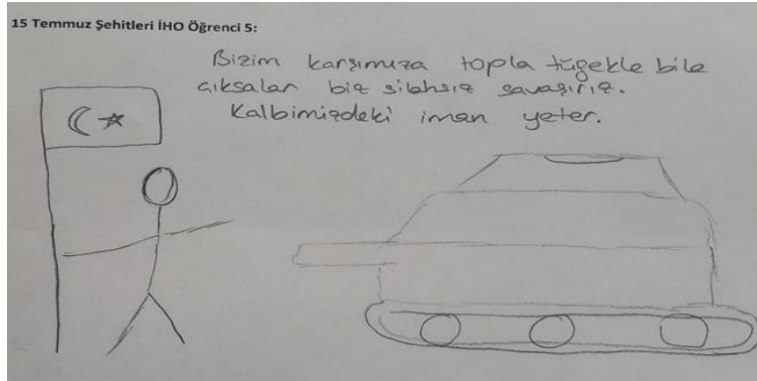 15 Temmuz Şehitleri İHO Öğrenci 5:
Bizim karşımıza topla tüfekle bile
çıksalar biz silahsız savaşırız.
Kalbimizdeki iman yeter.